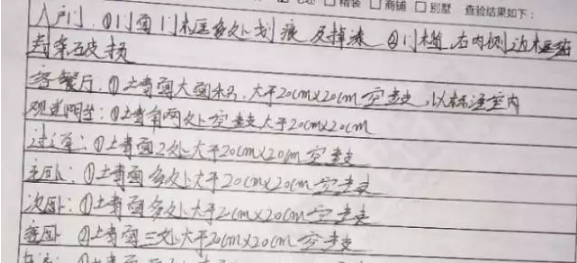 精装 □商铺 □别墅 查验结果如下:
入户门:①门面门框多处划痕及掉漆 ②门槛右内侧边框
条破损
客餐厅:①土音面大面积 大于20cm×20cm空鼓 以标注室内
观景阳台:①土音有两处空鼓大于20cm×20cm
过道:①土音面2处大于20cm×20cm空鼓
主卧:①土音面多处大于20cm×20cm空鼓
次卧:①土音面多处大于2cm×20cm空鼓
客卧 ①土音面三处大于20cm×20cm空鼓